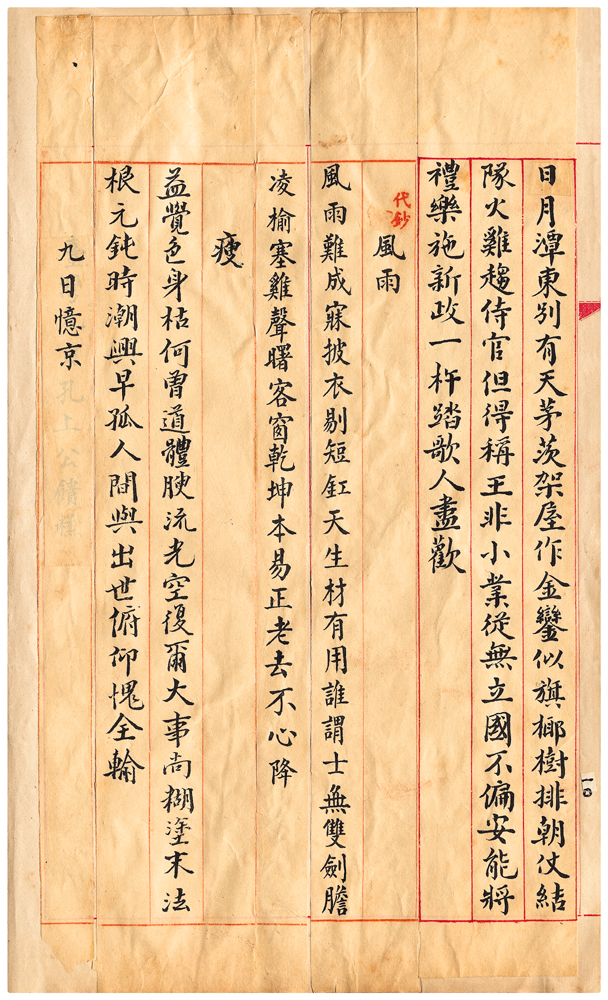 日月潭東別有天茅茨架屋作金鑾似旗椰樹排朝仗結
隊火雞趨侍官但得稱王非小業從無立國不偏安能將
禮樂施新政一杵踏歌人盡歡
代鈔
風雨
風雨難成寐披衣剔短釭天生材有用誰謂士無雙劍膽
凌榆塞雞聲曙客窗乾坤本易正老去不心降
瘦
益覺色身枯何曾道體腴流光空復爾大事尚糊塗末法
根元鈍時潮興早孤人間與出世俯仰愧全輸
九日憶京
10